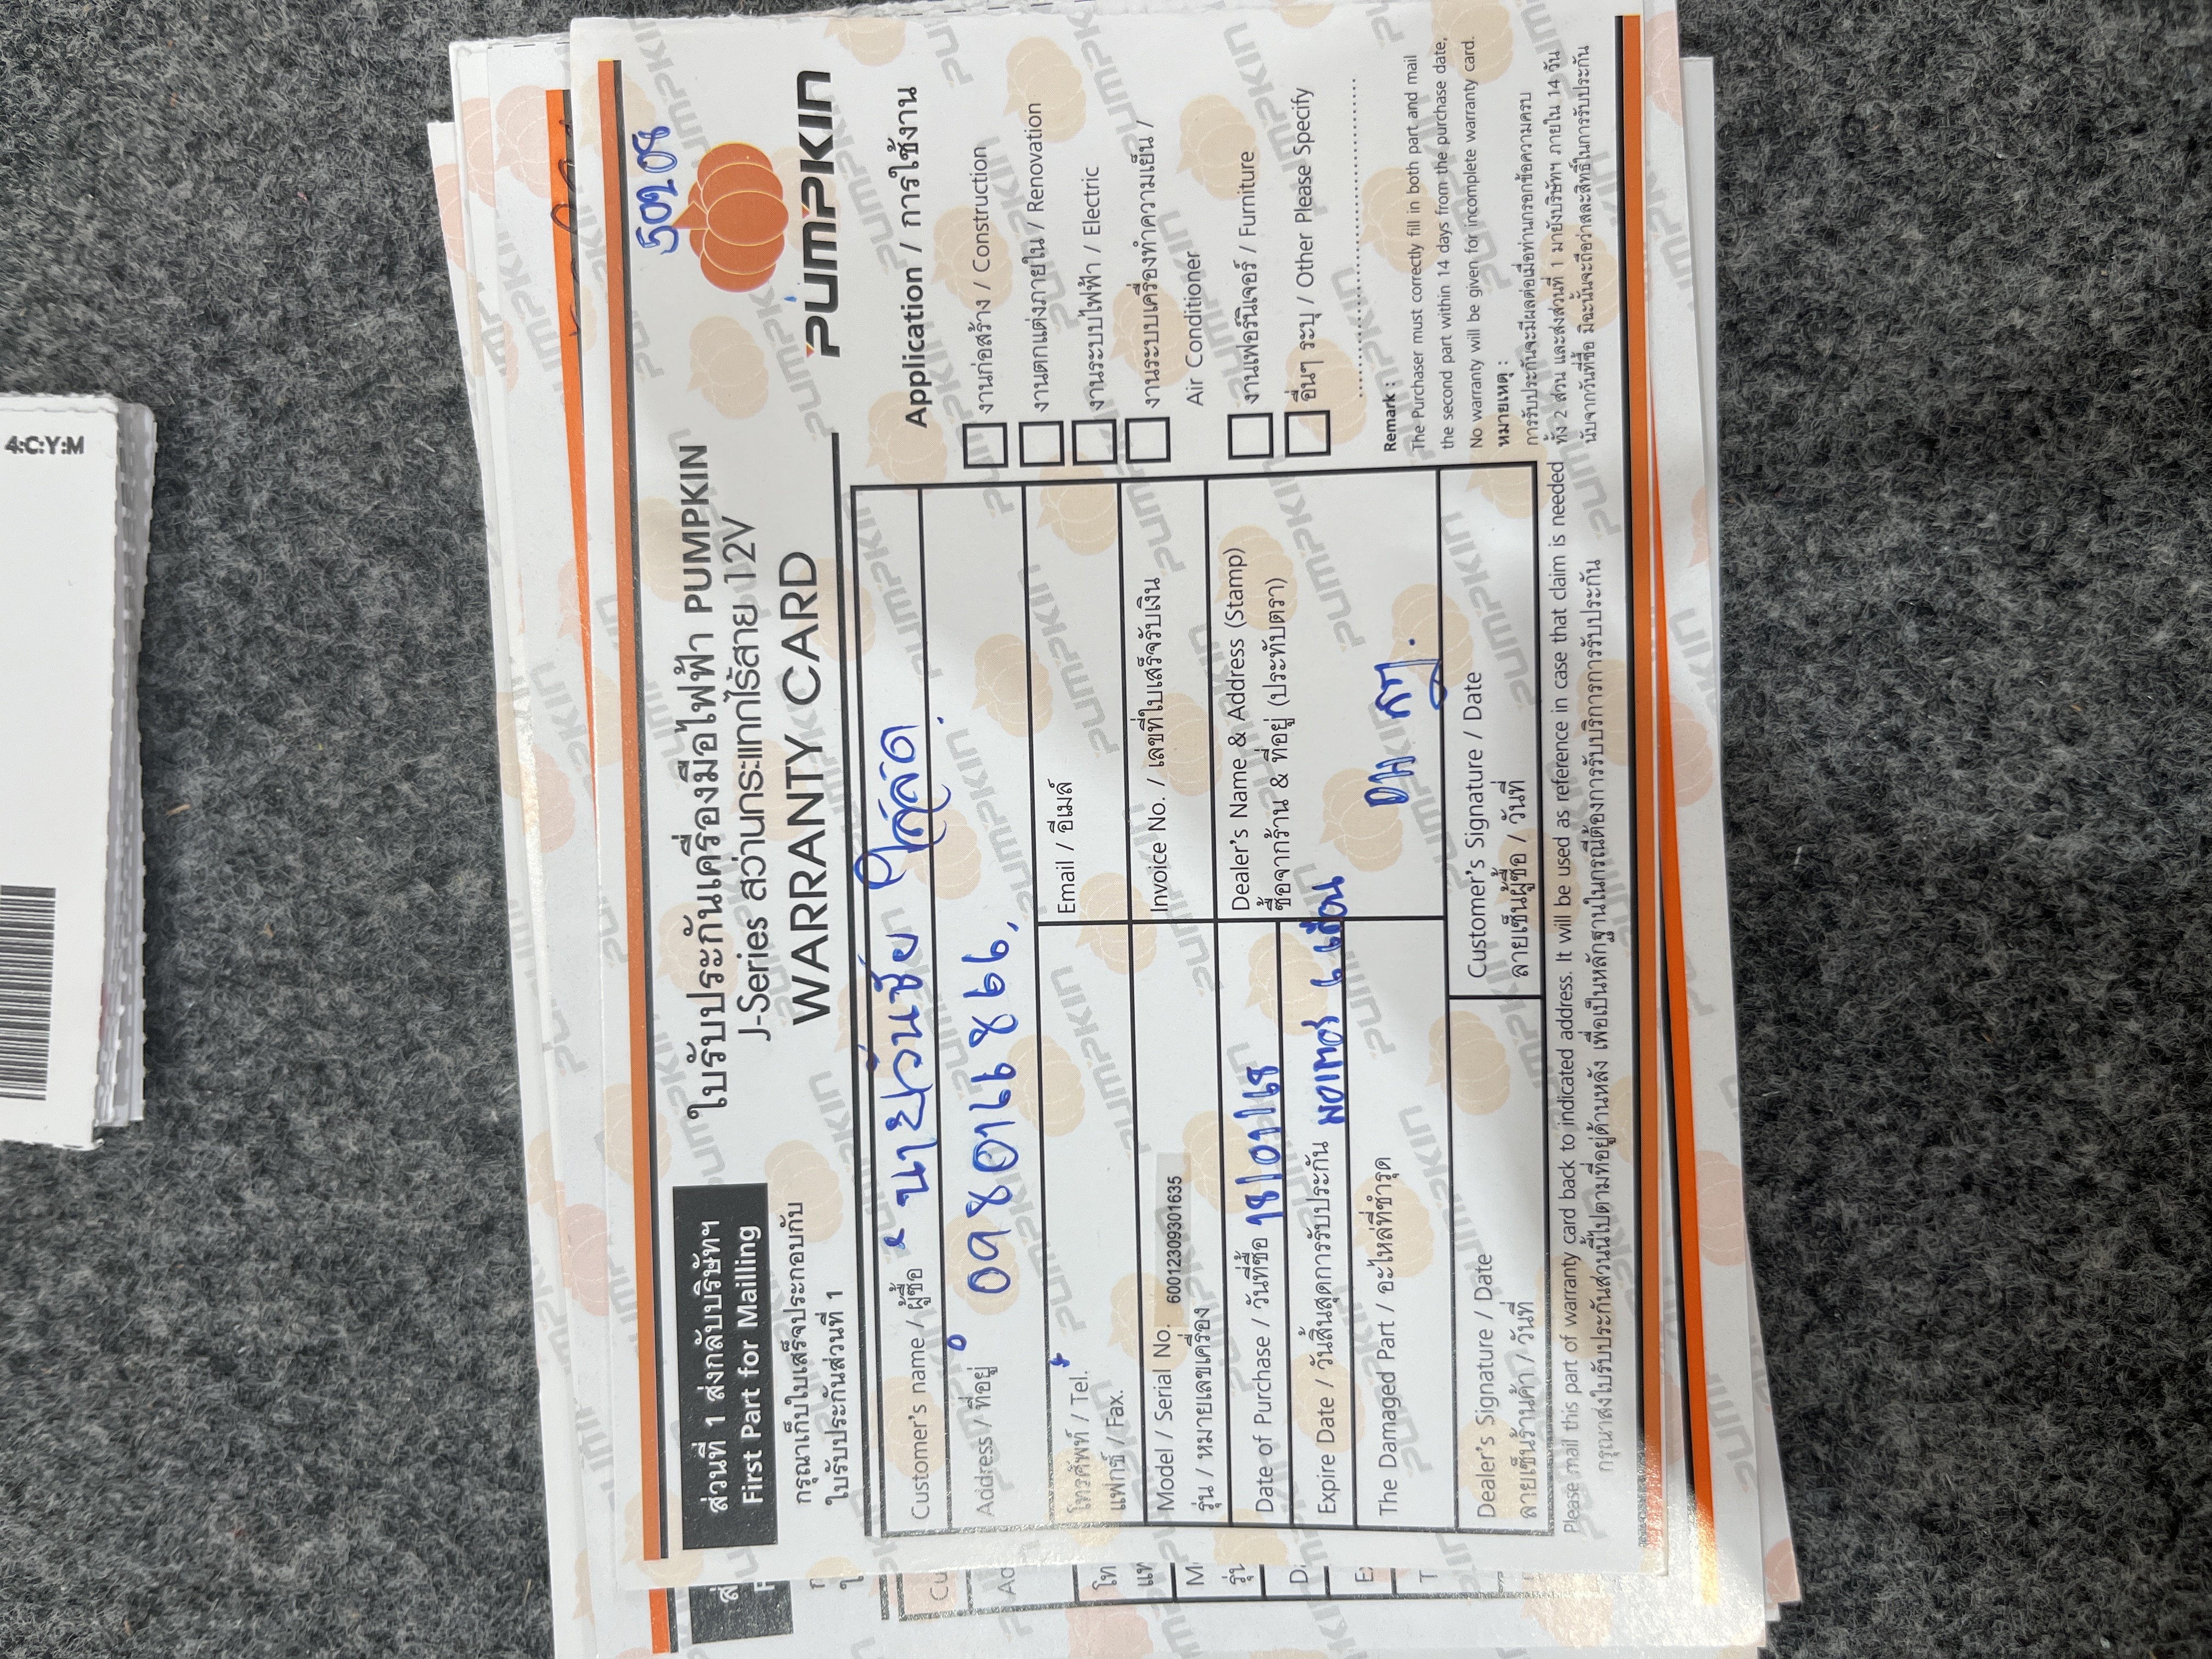 4:C:Y:M
50208
ส่วนที่ 1 ส่งกลับบริษัทฯ
First Part for Mailling
ใบรับประกันเครื่องมือไฟฟ้า PUMPKIN
J-Series สว่านกระแทกไร้สาย 12V
WARRANTY CARD
PUMPKIN
กรุณาเก็บใบเสร็จประกอบกับ
ใบรับประกันส่วนที่ 1
Customer's name / ผู้ซื้อ นายวันชัย
Address / ที่อยู่ 0980116866
โทรศัพท์ / Tel.
แฟกซ์ / Fax.
Email / อีเมล์
Model / Serial No. 60012309301635
รุ่น / หมายเลขเครื่อง
Invoice No. / เลขที่ใบเสร็จรับเงิน
Date of Purchase / วันที่ซื้อ 18/01/68
Expire Date / วันสิ้นสุดการรับประกัน มอเตอร์ 6 เดือน
The Damaged Part / อะไหล่ที่ชำรุด
Dealer's Name & Address (Stamp)
ซื้อจากร้าน & ที่อยู่ (ประทับตรา)
Dealer's Signature / Date
ลายเซ็นร้านค้า / วันที่
Customer's Signature / Date
ลายเซ็นผู้ซื้อ / วันที่
Application / การใช้งาน
งานก่อสร้าง / Construction
งานตกแต่งภายใน / Renovation
งานระบบไฟฟ้า / Electric
งานระบบเครื่องทำความเย็น /
Air Conditioner
งานเฟอร์นิเจอร์ / Furniture
อื่นๆ ระบุ / Other Please Specify
Remark :
The Purchaser must correctly fill in both part and mail
the second part within 14 days from the purchase date,
No warranty will be given for incomplete warranty card.
หมายเหตุ :
การรับประกันจะมีผลต่อเมื่อท่านกรอกข้อความครบ
ทั้ง 2 ส่วน และส่งส่วนที่ 1 มายังบริษัทฯ ภายใน 14 วัน
นับจากวันที่ซื้อ มิฉะนั้นจะถือว่าสละสิทธิ์ในการรับประกัน
Please mail this part of warranty card back to indicated address. It will be used as reference in case that claim is needed
กรุณาส่งใบรับประกันส่วนนี้ไปตามที่อยู่ด้านหลัง เพื่อเป็นหลักฐานในกรณีต้องการรับบริการการรับประกัน